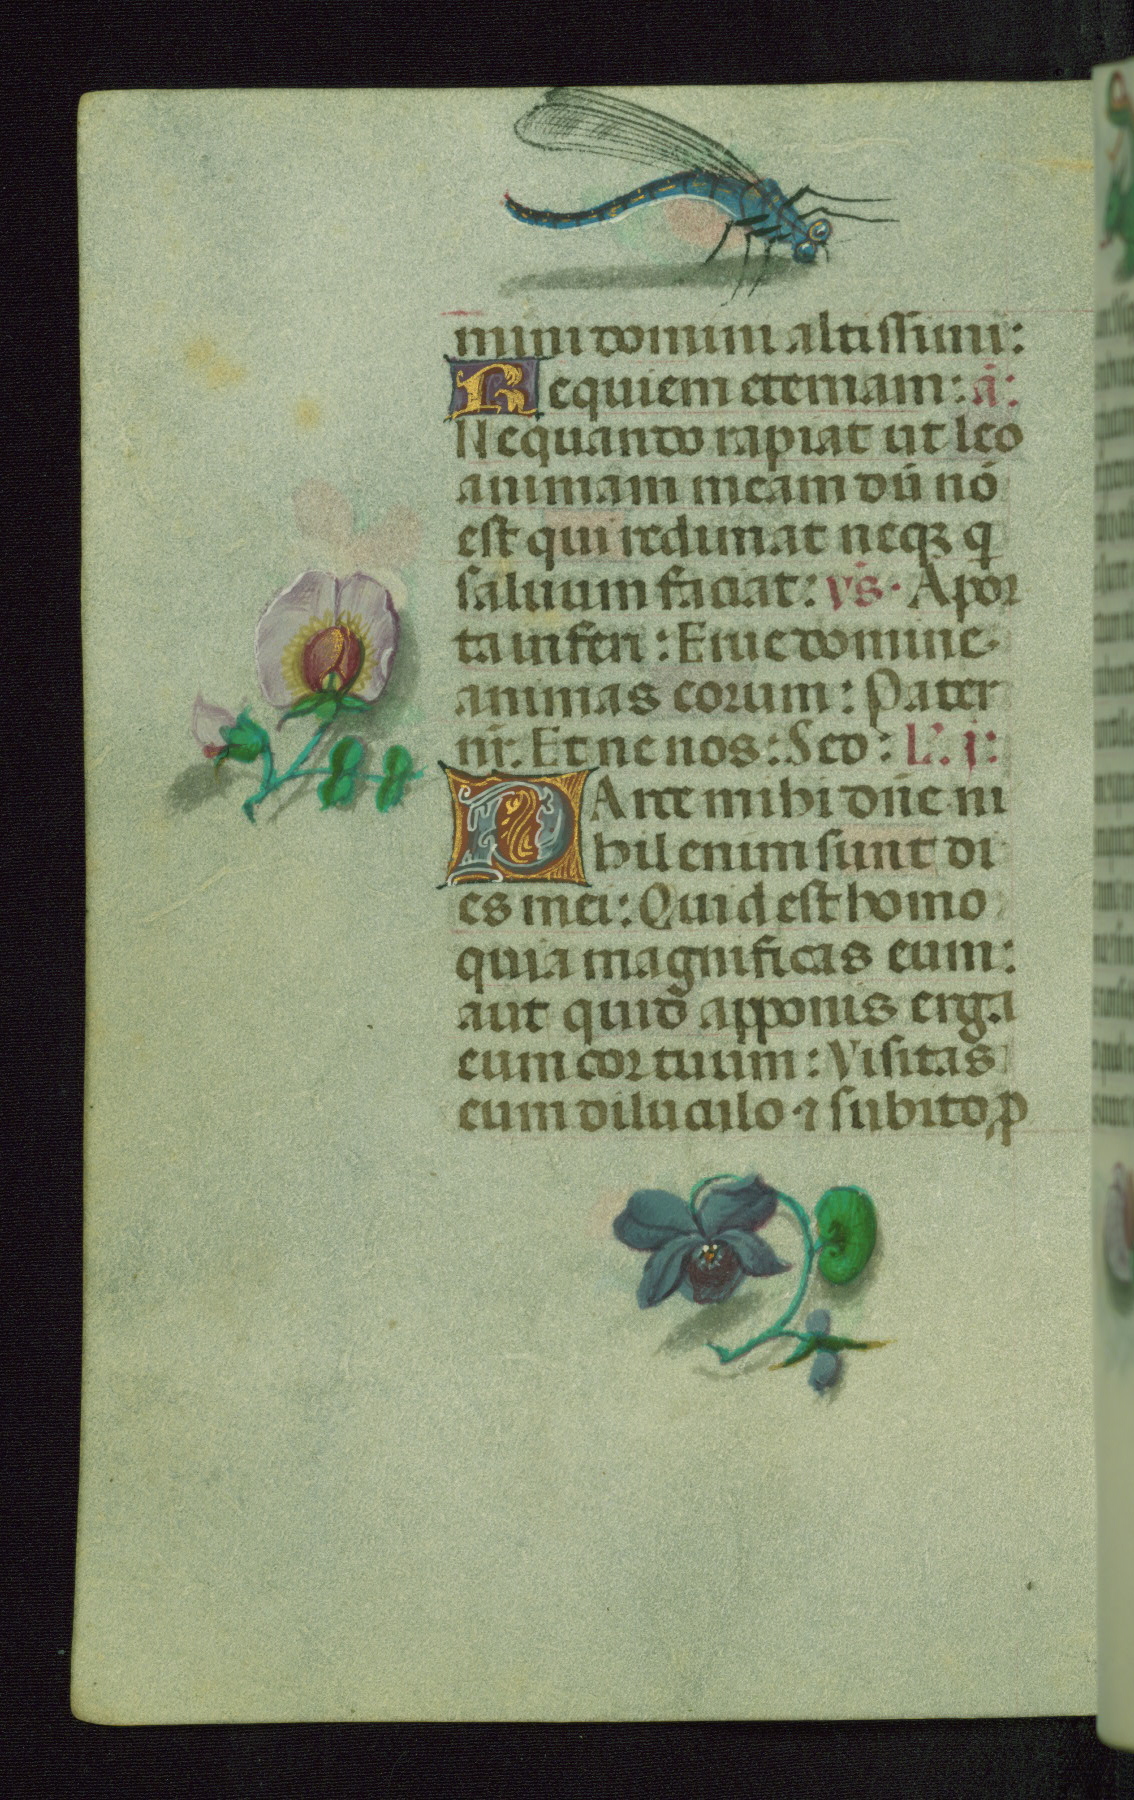 mini domini altissimi:
Requiem eternam: a͞:
Nequando rapiat ut leo
animam meam dū nō
est qui redimat neqꝫ q̄
saluum faciat: vs̄. A por
ta inferi: Erue domine.
animas eorum: Pater
nr̄. Et ne nos: Sed: L'. j:
PArce mihi dn̄e ni
hil enim sunt di
es mei: Quid est homo
quia magnificas eum:
aut quid apponis erga
eum cor tuum: Visitas
eum diluculo ⁊ subito ꝓ